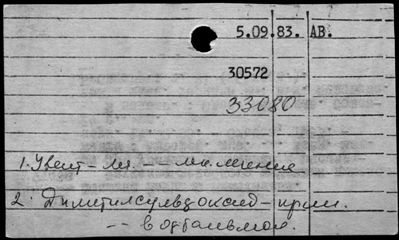 5.09.83. АВ.
30572
33080
1. Увеит - леч.
2. Диметилсульфоксид - прим.
-- в офтальмол.